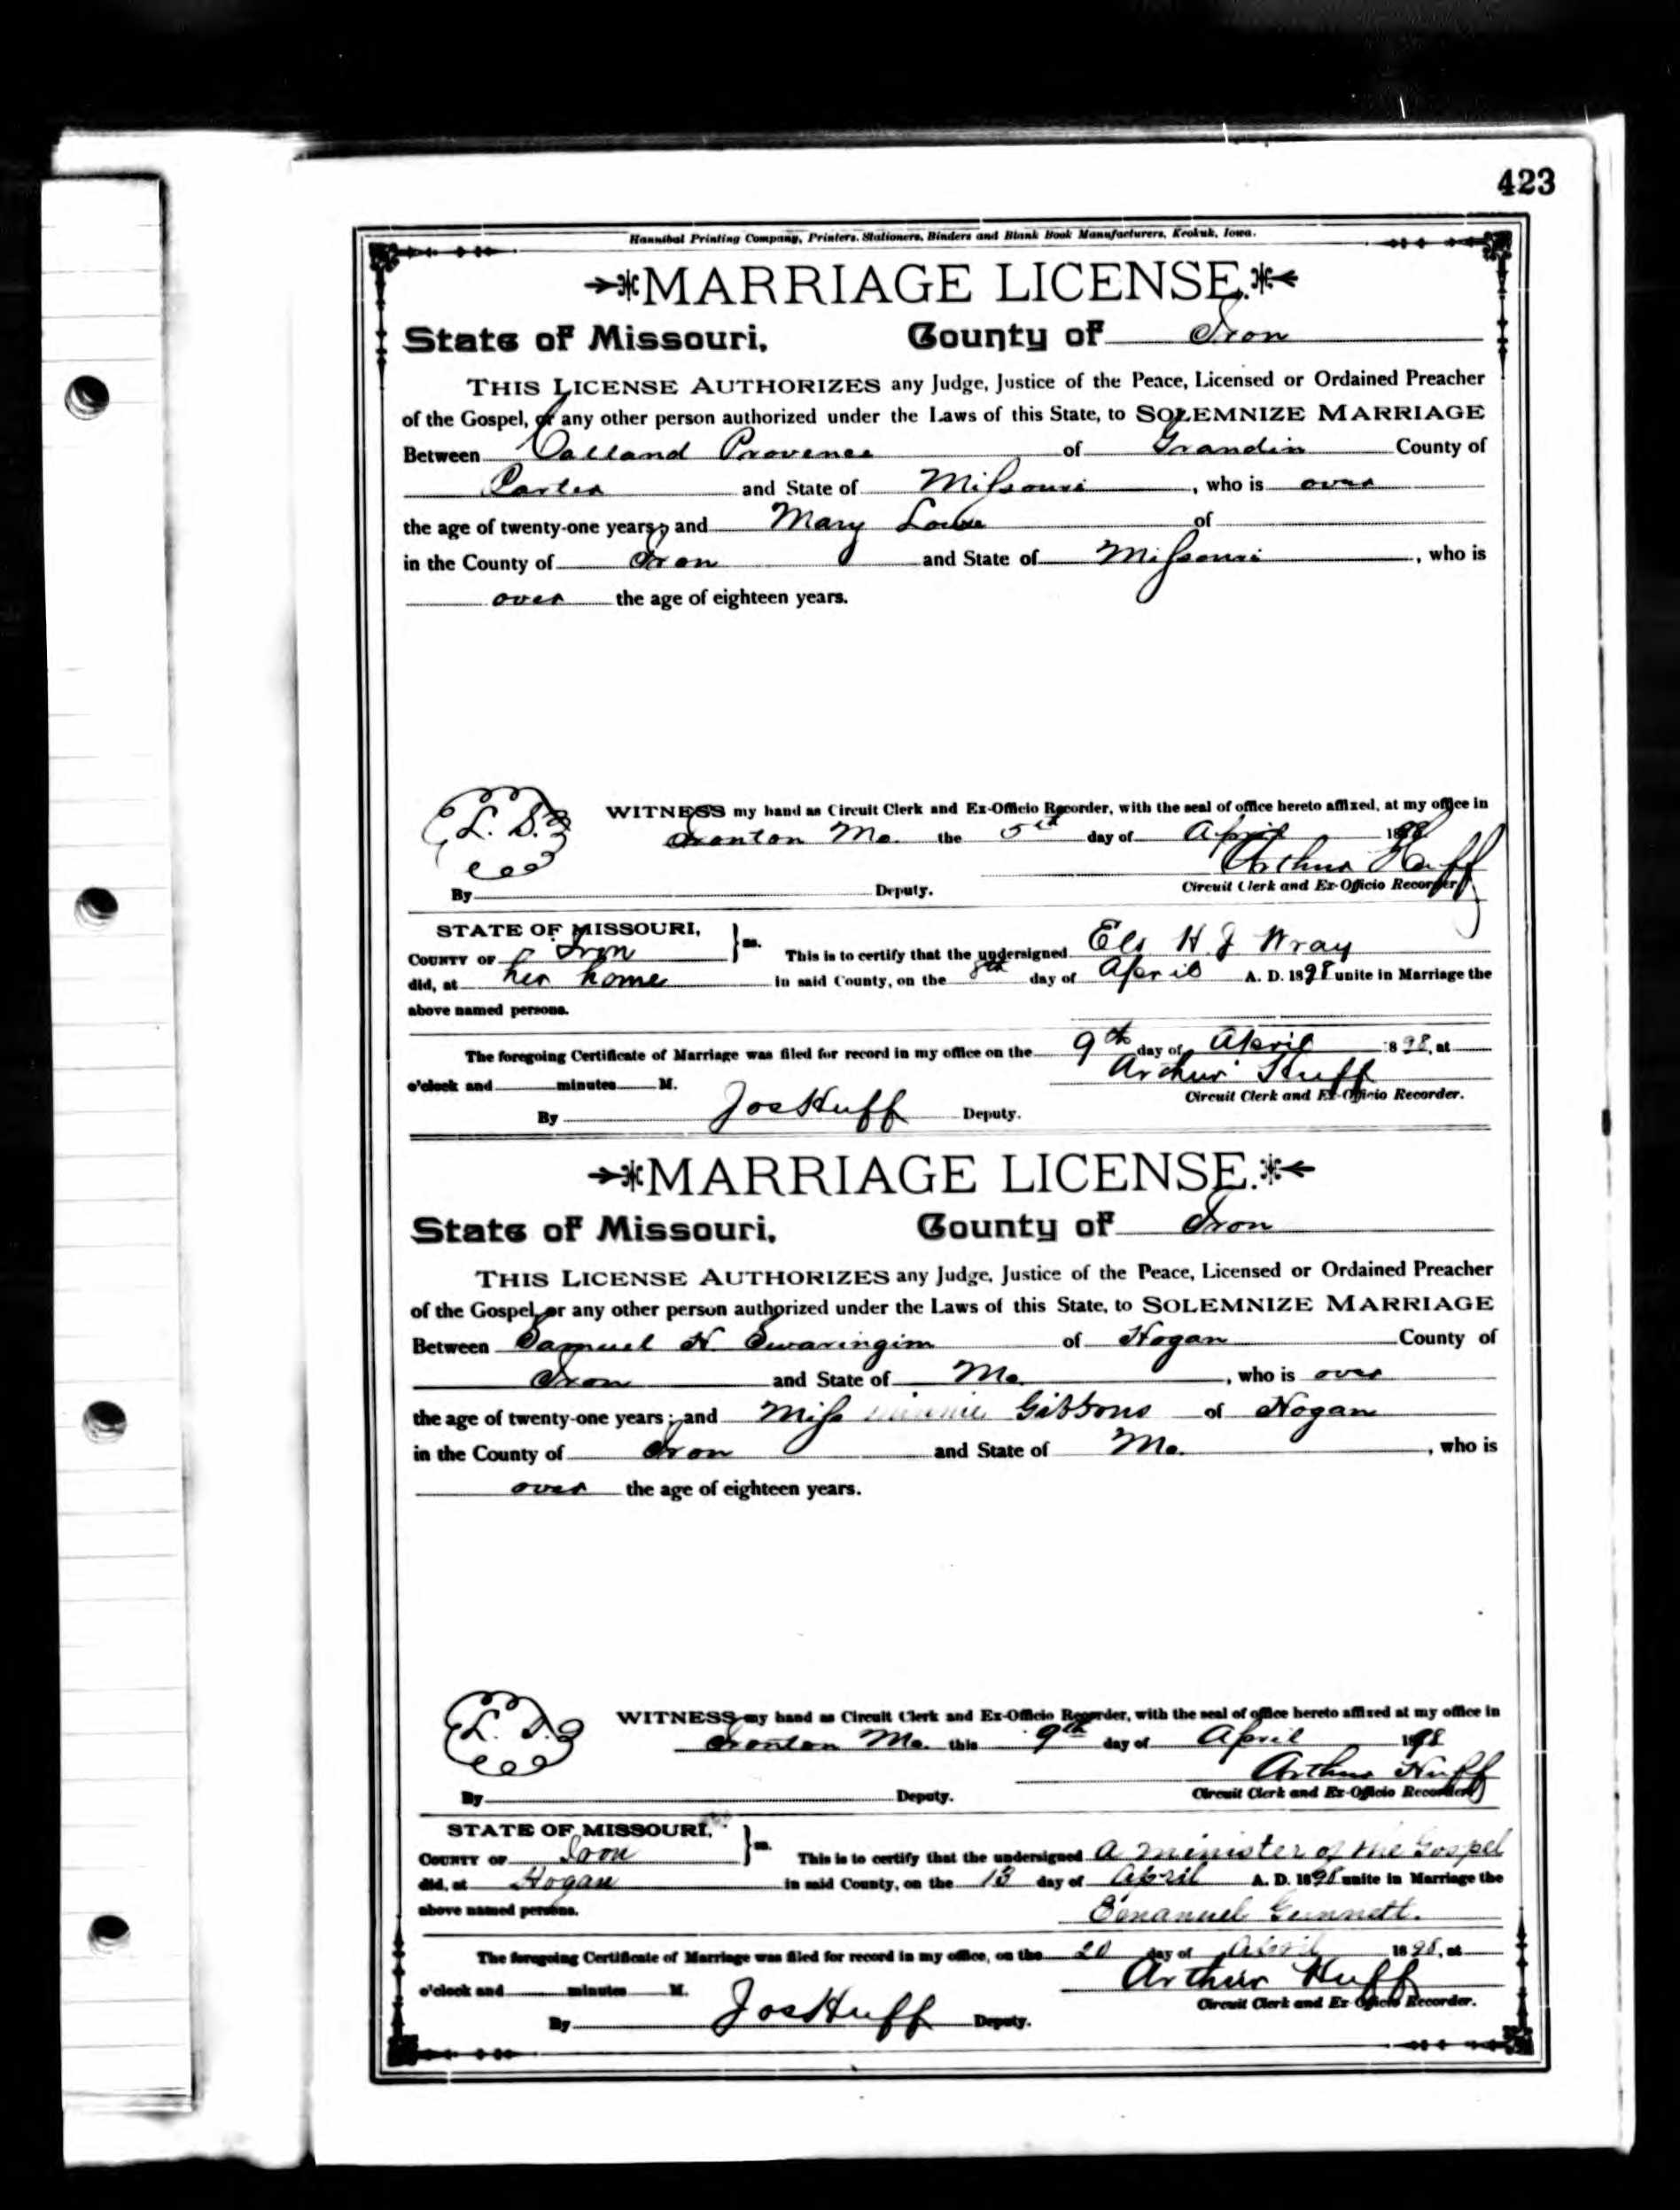 423
Hannibal Printing Company, Printers, Stationers, Binders and Blank Book Manufacturers, Keokuk, Iowa.
MARRIAGE LICENSE.
State of Missouri, County of Iron
THIS LICENSE AUTHORIZES any Judge, Justice of the Peace, Licensed or Ordained Preacher
of the Gospel, or any other person authorized under the Laws of this State, to SOLEMNIZE MARRIAGE
Between Oalland Provence of Grandin County of
Carter and State of Missouri, who is over
the age of twenty-one years; and Mary Lowe of
in the County of Iron and State of Missouri, who is
over the age of eighteen years.
L. S.
WITNESS my hand as Circuit Clerk and Ex-Officio Recorder, with the seal of office hereto affixed, at my office in
Ironton Mo. the 5th day of April 1898
Arthur Huff
By Deputy. Circuit Clerk and Ex-Officio Recorder
STATE OF MISSOURI,
COUNTY OF Iron } ss. This is to certify that the undersigned Eld H J Wray
did, at her home in said County, on the 8th day of April A. D. 1898 unite in Marriage the
above named persons.
The foregoing Certificate of Marriage was filed for record in my office on the 9th day of April 1898, at
o'clock and minutes M. Arthur Huff
Circuit Clerk and Ex-Officio Recorder.
By Jos Huff Deputy.
MARRIAGE LICENSE.
State of Missouri, County of Iron
THIS LICENSE AUTHORIZES any Judge, Justice of the Peace, Licensed or Ordained Preacher
of the Gospel, or any other person authorized under the Laws of this State, to SOLEMNIZE MARRIAGE
Between Samuel N. Swaringim of Hogan County of
Iron and State of Mo., who is over
the age of twenty-one years; and Miss Minnie Gibbons of Hogan
in the County of Iron and State of Mo., who is
over the age of eighteen years.
L. S.
WITNESS my hand as Circuit Clerk and Ex-Officio Recorder, with the seal of office hereto affixed at my office in
Ironton Mo. this 9th day of April 1898
Arthur Huff
By Deputy. Circuit Clerk and Ex-Officio Recorder
STATE OF MISSOURI,
COUNTY OF Iron } ss. This is to certify that the undersigned A Minister of the Gospel
did, at Hogan in said County, on the 13 day of April A. D. 1898 unite in Marriage the
above named persons. Emanuel Gunnett.
The foregoing Certificate of Marriage was filed for record in my office, on the 20 day of April 1898, at
o'clock and minutes M. Arthur Huff
Circuit Clerk and Ex Officio Recorder.
By Jos Huff Deputy.